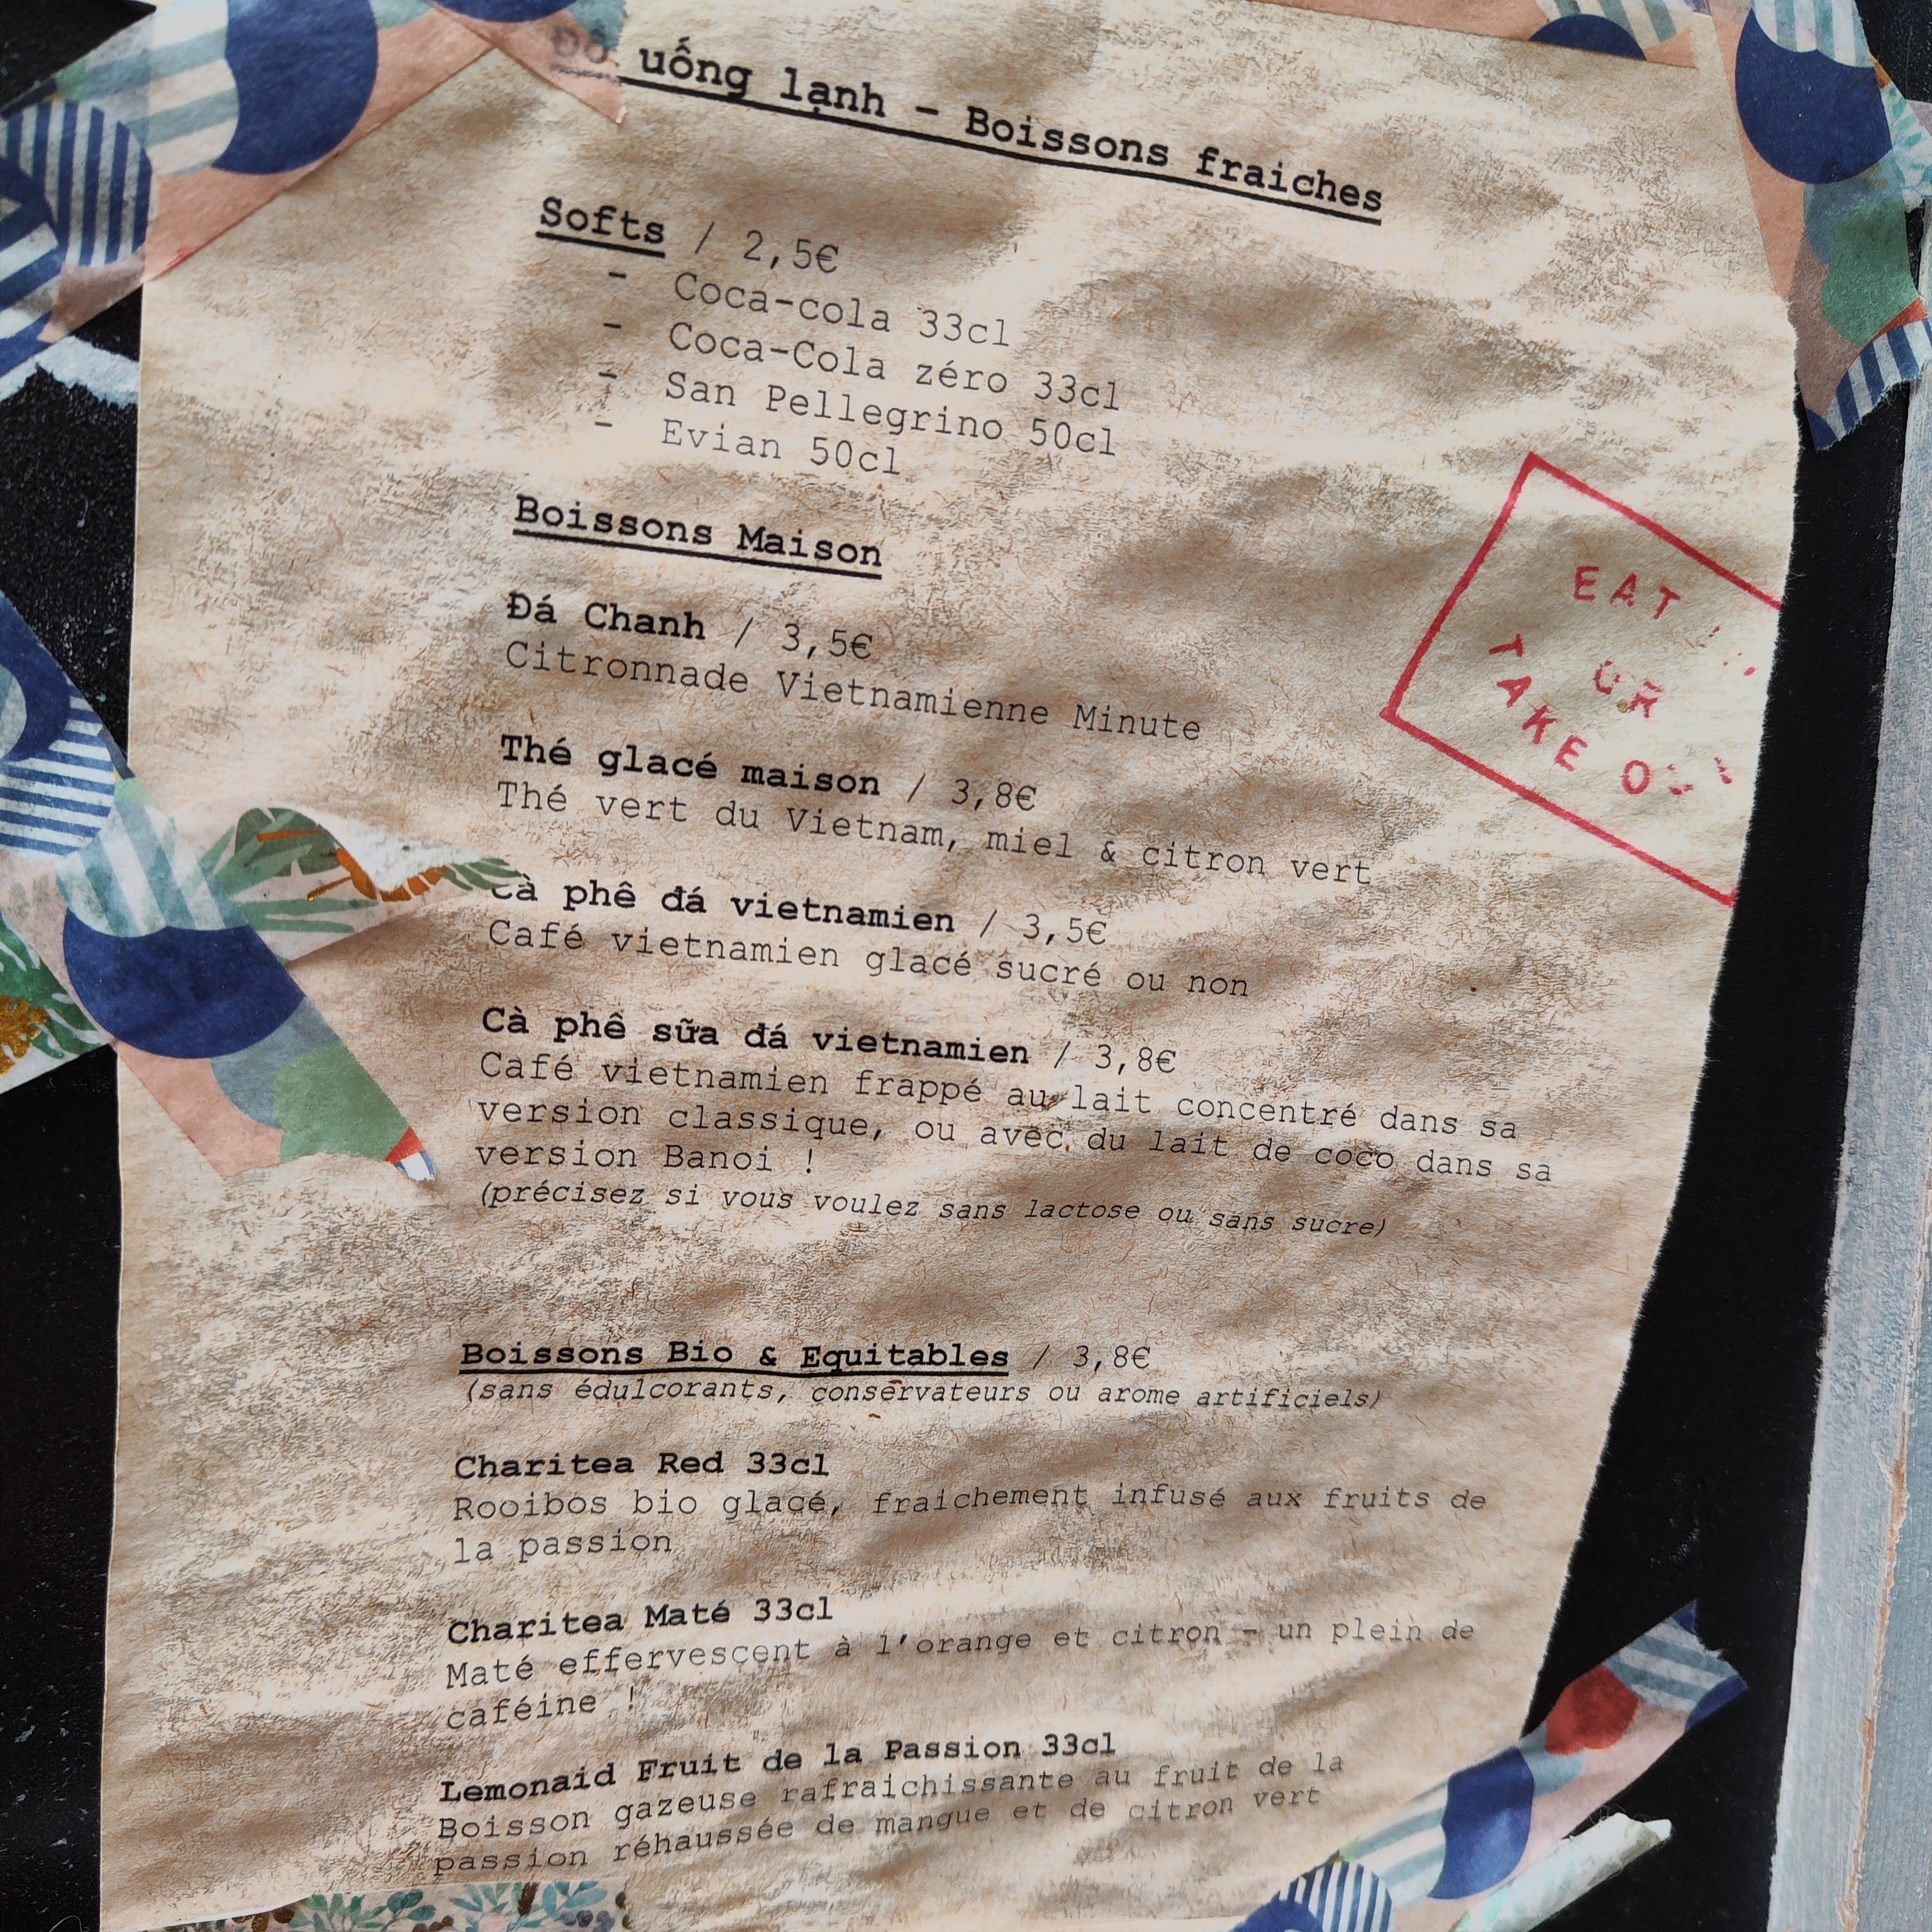 Đồ uống lạnh - Boissons fraiches
Softs / 2,5€
- Coca-cola 33cl
- Coca-Cola zéro 33cl
- San Pellegrino 50cl
- Evian 50cl
Boissons Maison
Đá Chanh / 3,5€
Citronnade Vietnamienne Minute
Thé glacé maison / 3,8€
Thé vert du Vietnam, miel & citron vert
Cà phê đá vietnamien / 3,5€
Café vietnamien glacé sucré ou non
Cà phê sữa đá vietnamien / 3,8€
Café vietnamien frappé au lait concentré dans sa
version classique, ou avec du lait de coco dans sa
version Banoi !
(précisez si vous voulez sans lactose ou sans sucre)
Boissons Bio & Equitables / 3,8€
(sans édulcorants, conservateurs ou arome artificiels)
Charitea Red 33cl
Rooibos bio glacé, fraichement infusé aux fruits de
la passion
Charitea Maté 33cl
Maté effervescent à l'orange et citron - un plein de
caféine !
Lemonaid Fruit de la Passion 33cl
Boisson gazeuse rafraichissante au fruit de la
passion réhaussée de mangue et de citron vert
EAT
OR
TAKE